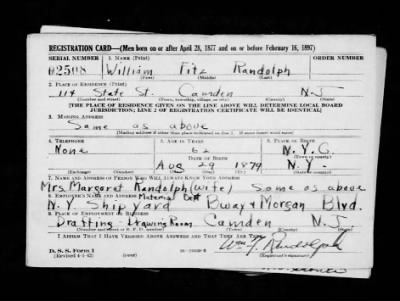 REGISTRATION CARD—(Men born on or after April 28, 1877 and on or before February 16, 1897)
SERIAL NUMBER 1. NAME (Print) ORDER NUMBER
02508 William Fitz Randolph
(First) (Middle) (Last)
2. PLACE OF RESIDENCE (Print)
State St. Camden N.J.
(Number and street) (Town, township, village, or city) (County) (State)
[THE PLACE OF RESIDENCE GIVEN ON THE LINE ABOVE WILL DETERMINE LOCAL BOARD
JURISDICTION; LINE 2 OF REGISTRATION CERTIFICATE WILL BE IDENTICAL]
3. MAILING ADDRESS
Same as above
[Mailing address if other than place indicated on line 2. If same insert word same]
4. TELEPHONE 5. AGE IN YEARS 6. PLACE OF BIRTH
None 62 N.Y.C.
DATE OF BIRTH
Aug 29 1879 N.Y.
7. NAME AND ADDRESS OF PERSON WHO WILL ALWAYS KNOW YOUR ADDRESS
Mrs. Margaret Randolph (wife) Same as above
8. EMPLOYER'S NAME AND ADDRESS Material Dept
N.Y. Ship Yard Bway & Morgan Blvd.
9. PLACE OF EMPLOYMENT OR BUSINESS
Drafting - Drawing Room Camden N.J.
(Number and street or R. F. D. number) (Town) (County) (State)
I AFFIRM THAT I HAVE VERIFIED ABOVE ANSWERS AND THAT THEY ARE TRUE.
D. S. S. Form 1 Wm F. Randolph
(Revised 4-1-42) (over) (Registrant's signature)